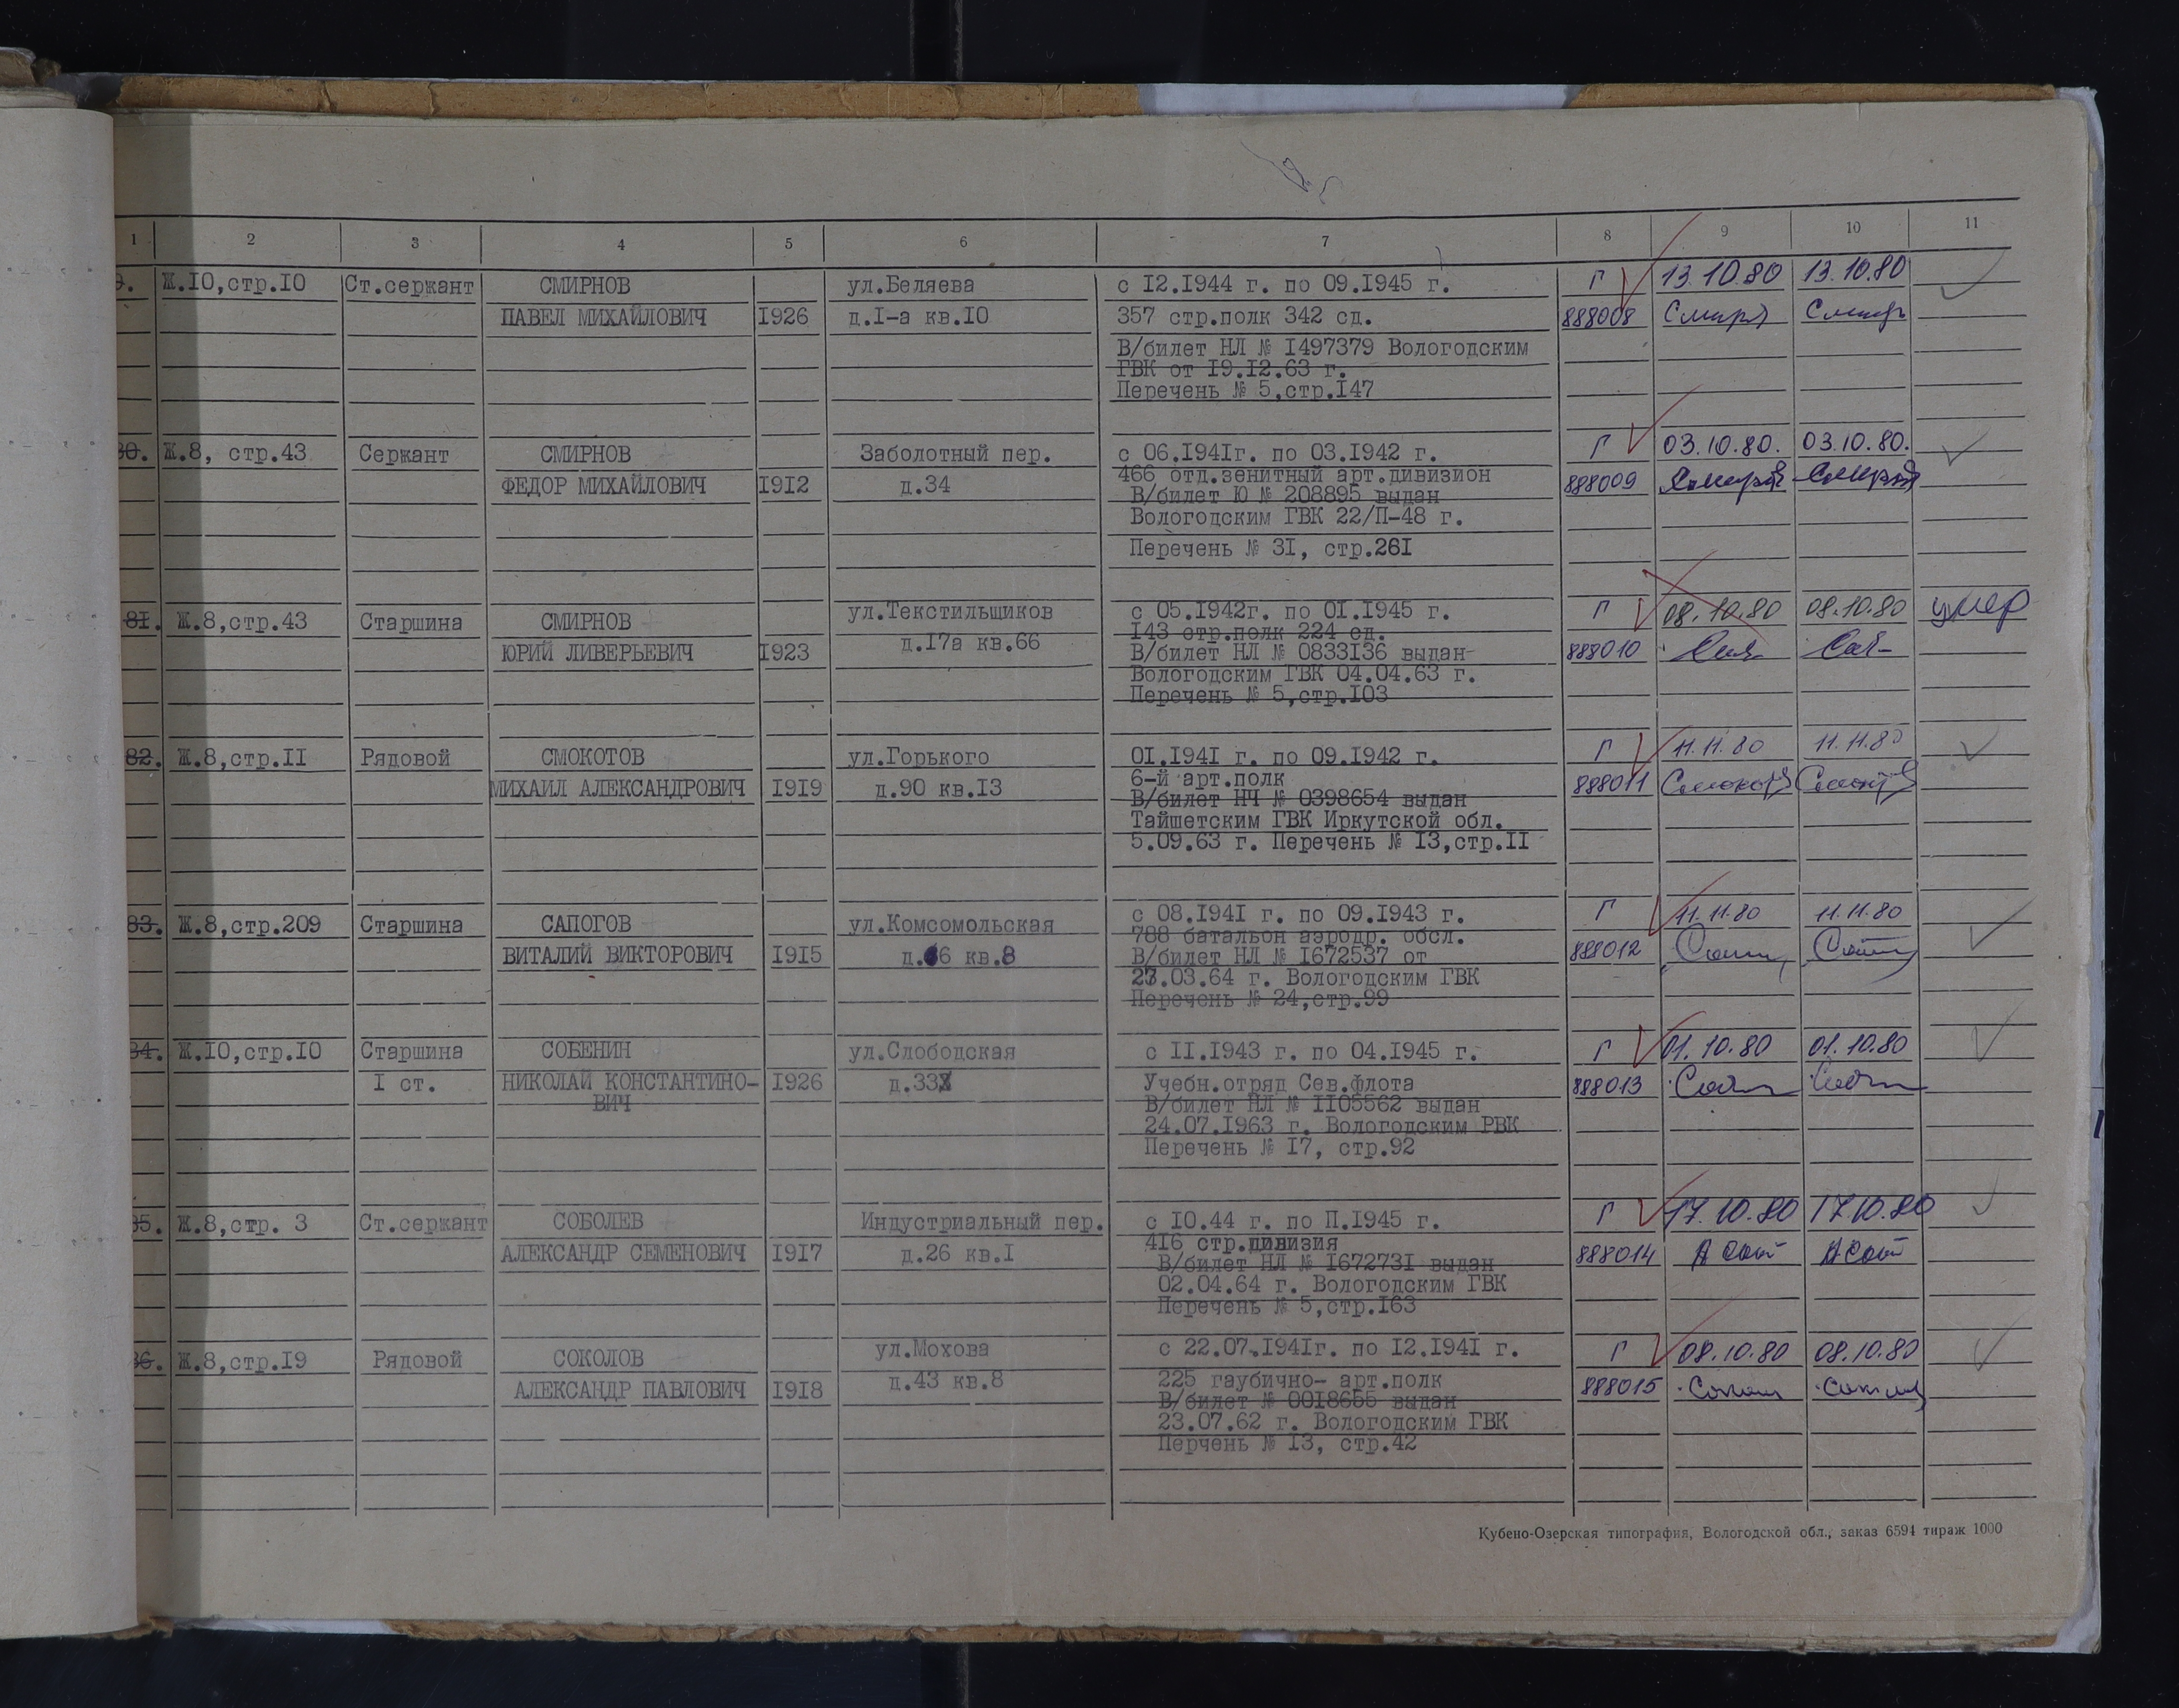 1 2 3 4 5 6 7 8 9 10 11
9. Ж.10,стр.10 Ст.сержант СМИРНОВ ул.Беляева с 12.1944 г. по 09.1945 г. Г 13.10.80 13.10.80
ПАВЕЛ МИХАЙЛОВИЧ 1926 д.1-а кв.10 357 стр.полк 342 сд. 888008
В/билет НЛ № 1497379 Вологодским
ГВК от 19.12.63 г.
Перечень № 5,стр.147
80. Ж.8, стр.43 Сержант СМИРНОВ Заболотный пер. с 06.1941г. по 03.1942 г. Г 03.10.80. 03.10.80.
466 отд.зенитный арт.дивизион
ФЕДОР МИХАЙЛОВИЧ 1912 д.34 В/билет Ю № 208895 выдан 888009
Вологодским ГВК 22/П-48 г.
Перечень № 31, стр.261
81. Ж.8,стр.43 Старшина СМИРНОВ ул.Текстильщиков с 05.1942г. по 01.1945 г. Г 08.10.80 08.10.80 умер
143 стр.полк 224 сд.
ЮРИЙ ЛИВЕРЬЕВИЧ 1923 д.17а кв.66 В/билет НЛ № 0833136 выдан 888010
Вологодским ГВК 04.04.63 г.
Перечень № 5,стр.103
82. Ж.8,стр.11 Рядовой СМОКОТОВ ул.Горького 01.1941 г. по 09.1942 г. Г 11.11.80 11.11.80
6-й арт.полк
МИХАИЛ АЛЕКСАНДРОВИЧ 1919 д.90 кв.13 В/билет НЧ № 0398654 выдан 888011
Тайшетским ГВК Иркутской обл.
5.09.63 г. Перечень № 13,стр.11
83. Ж.8,стр.209 Старшина САПОГОВ ул.Комсомольская с 08.1941 г. по 09.1943 г. Г 11.11.80 11.11.80
788 батальон аэродр. обсл.
ВИТАЛИЙ ВИКТОРОВИЧ 1915 кв.8 В/билет НЛ № 1672537 от 888012
.03.64 г. Вологодским ГВК
Перечень № 24,стр.99
84. Ж.10,стр.10 Старшина СОБЕНИН ул.Слободская с 11.1943 г. по 04.1945 г. Г 01.10.80 01.10.80
1 ст. НИКОЛАЙ КОНСТАНТИНО- 1926 д.33 Учебн.отряд Сев.флота 888013
ВИЧ В/билет НЛ № 1105562 выдан
24.07.1963 г. Вологодским РВК
Перечень № 17, стр.92
85. Ж.8,стр. 3 Ст.сержант СОБОЛЕВ Индустриальный пер. с 10.44 г. по П.1945 г. Г 17.10.80 17.10.80
416 стр.дивизия
АЛЕКСАНДР СЕМЕНОВИЧ 1917 д.26 кв.1 В/билет НЛ № 1672731 выдан 888014
02.04.64 г. Вологодским ГВК
Перечень № 5,стр.163
86. Ж.8,стр.19 Рядовой СОКОЛОВ ул.Мохова с 22.07.1941г. по 12.1941 г. Г 08.10.80 08.10.80
АЛЕКСАНДР ПАВЛОВИЧ 1918 д.43 кв.8 225 гаубично- арт.полк 888015
В/билет № 0018655 выдан
23.07.62 г. Вологодским ГВК
Перчень № 13, стр.42
Кубено-Озерская типография, Вологодской обл., заказ 6594 тираж 1000